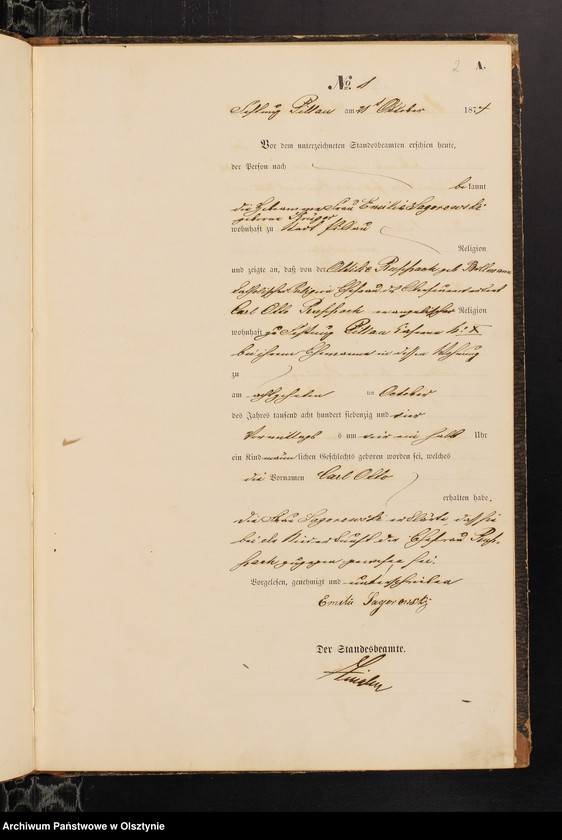 2 A.
No. 1
Festung Pillau am 21t October 1874
Vor dem unterzeichneten Standesbeamten erschien heute,
der Person nach
bekannt
die Hebamme Frau Emilie Sagorowski
geborene Krüger
wohnhaft zu Stadt Pillau
Religion
und zeigte an, daß von der Ottilie geb Bollmann
katholischer Religion Ehefrau des
Carl Otto evangelischer Religion
wohnhaft zu Festung Pillau Kaserne No: X
bei ihrem Ehemanne in dessen Wohnung
zu
am achtzehnten ten October
des Jahres tausend acht hundert siebenzig und vier
Vormittags s um vier ein halb Uhr
ein Kind männlichen Geschlechts geboren worden sei, welches
die Vornamen Carl Otto
erhalten habe.
die Frau Sagorowski erklärte, daß sie
bei der Niederkunft der Ehefrau
zugegen gewesen sei.
Vorgelesen, genehmigt und unterschrieben
Emilie Sagorowski
Der Standesbeamte.
Archiwum Państwowe w Olsztynie